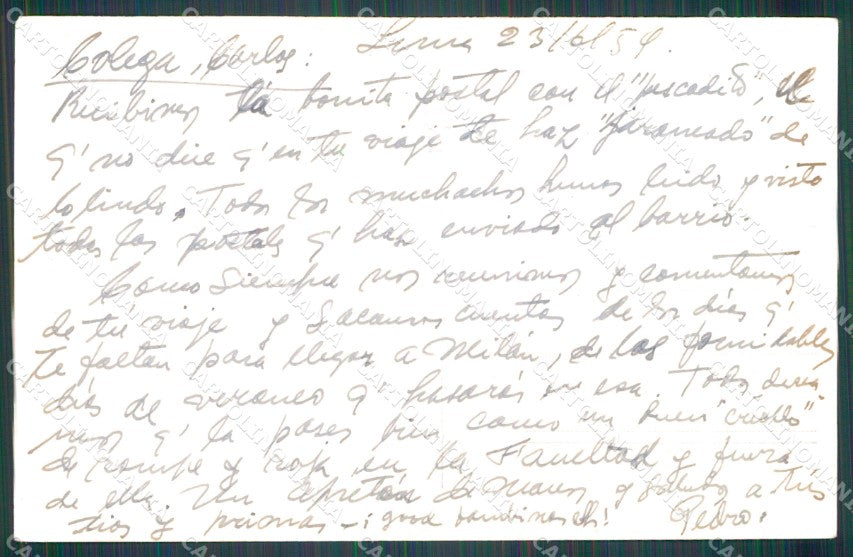 Lima 23/6/54.
Colega, Carlos:
Recibimos la bonita postal con el "pescadito", el
q' no dice q' en tu viaje te haz "jaraneado" de
lo lindo. Todos los muchachos hemos leido y visto
todas las postales q' haz enviado al barrio.
Como siempre nos reunimos y comentamos
de tu viaje y sacamos cuentas de los dias q'
te faltan para llegar a Milán, de los formidables
dias de veraneo q' pasarás en esa. Todos desea
mos q' la pases bien como un buen "criollo"
de rompe y raja en la Facultad y fuera
de ella. Un apretón de manos y saludos a tus
tios y primas - ¡good!
Pedro.
CARTOLINOMANIA